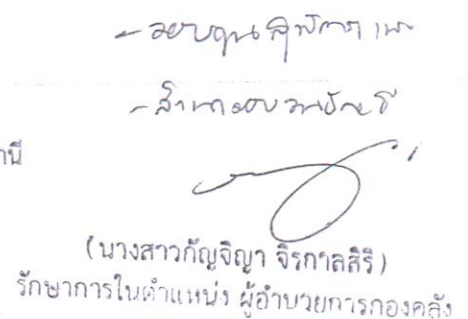 - มอบคุณสุพัตรา
- สำเนามอบงานบัญชี
านี
(นางสาวกัญจิญา จิรกาลสิริ)
รักษาการในตำแหน่ง ผู้อำนวยการกองคลัง